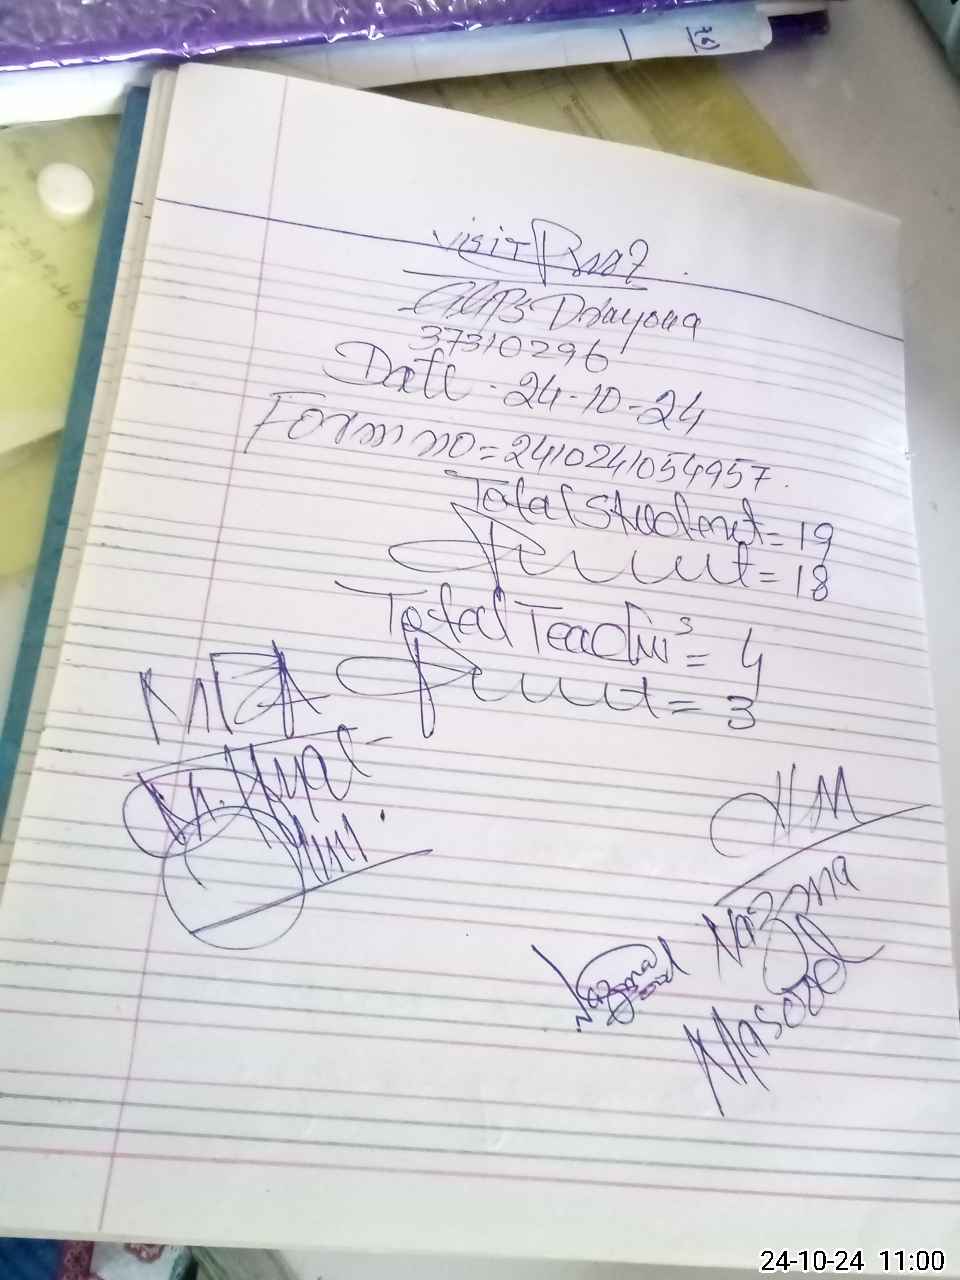 visit Proof
GGPS Drayona
37310296
Date . 24-10-24
Form no = 2410241054957.
Total Student = 19
Present = 18
Total Teachers = 4
Present = 3
MEA
M. Ayaz
HM
Nazma
Masood
Nazma
24-10-24 11:00